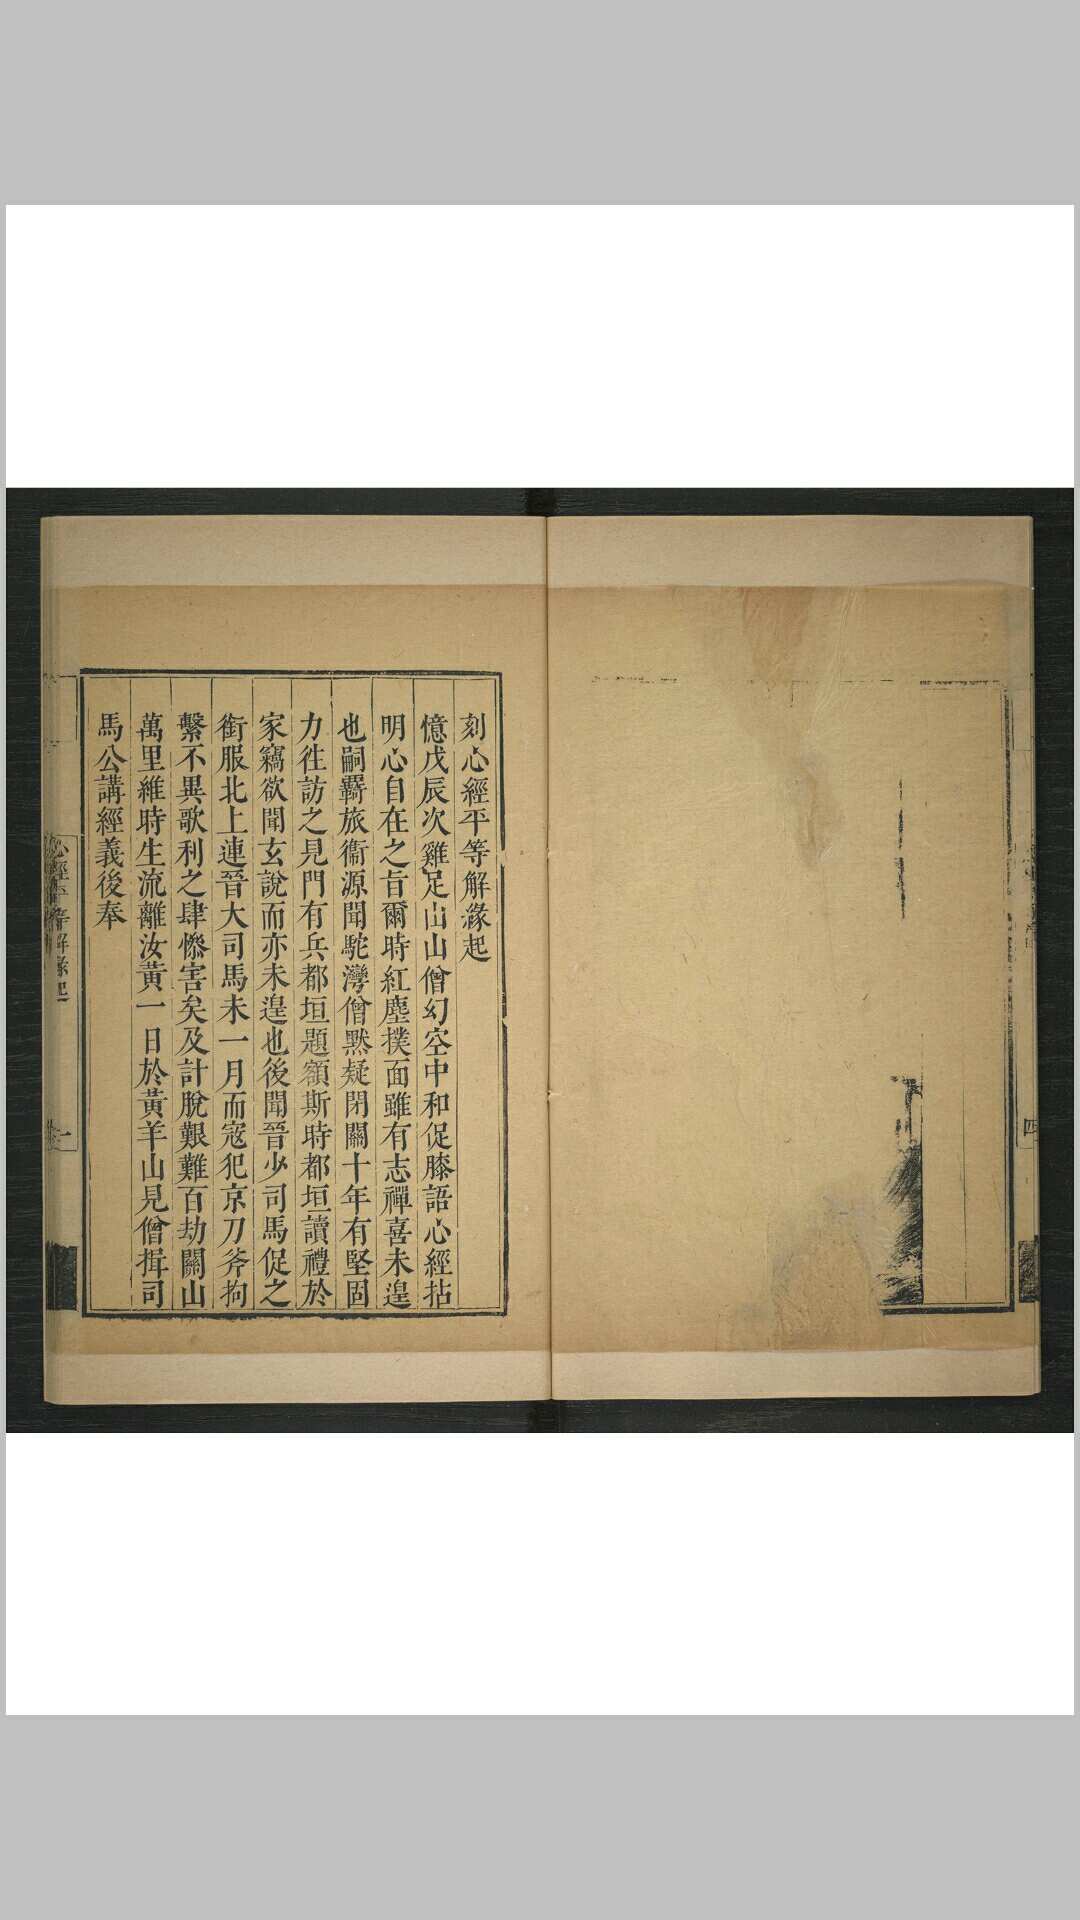 四
刻心經平等解緣起
憶戊辰次雞足山山僧幻空中和促膝語心經拈
明心自在之旨爾時紅塵撲面雖有志禪喜未遑
也嗣羇旅衞源聞駝灣僧默疑閉關十年有堅固
力徃訪之見門有兵都垣題額斯時都垣讀禮於
家竊欲聞玄說而亦未遑也後聞晉少司馬促之
銜服北上連晉大司馬未一月而寇犯京刀斧拘
繫不異歌利之肆慘害矣及計脫艱難百劫關山
萬里維時生流離汝黃一日於黃羊山見僧揖司
馬公講經義後奉
心經平等解緣起
一